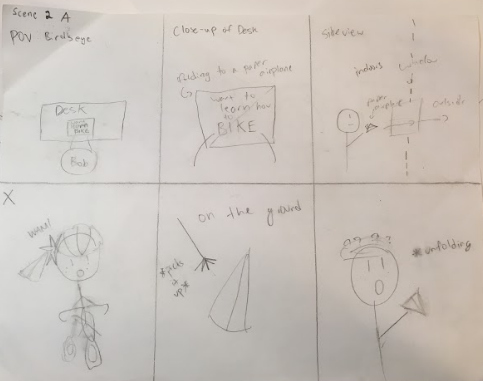 Scene 2 A
POV Birdseye
Desk
Bob
Close-up of Desk
folding to a paper
airplane
want to
learn how
to
BIKE
side view
indoors
window
outside
paper
airplane
X
on the ground
*picks
it
up*
? ? ? ?
*unfolding